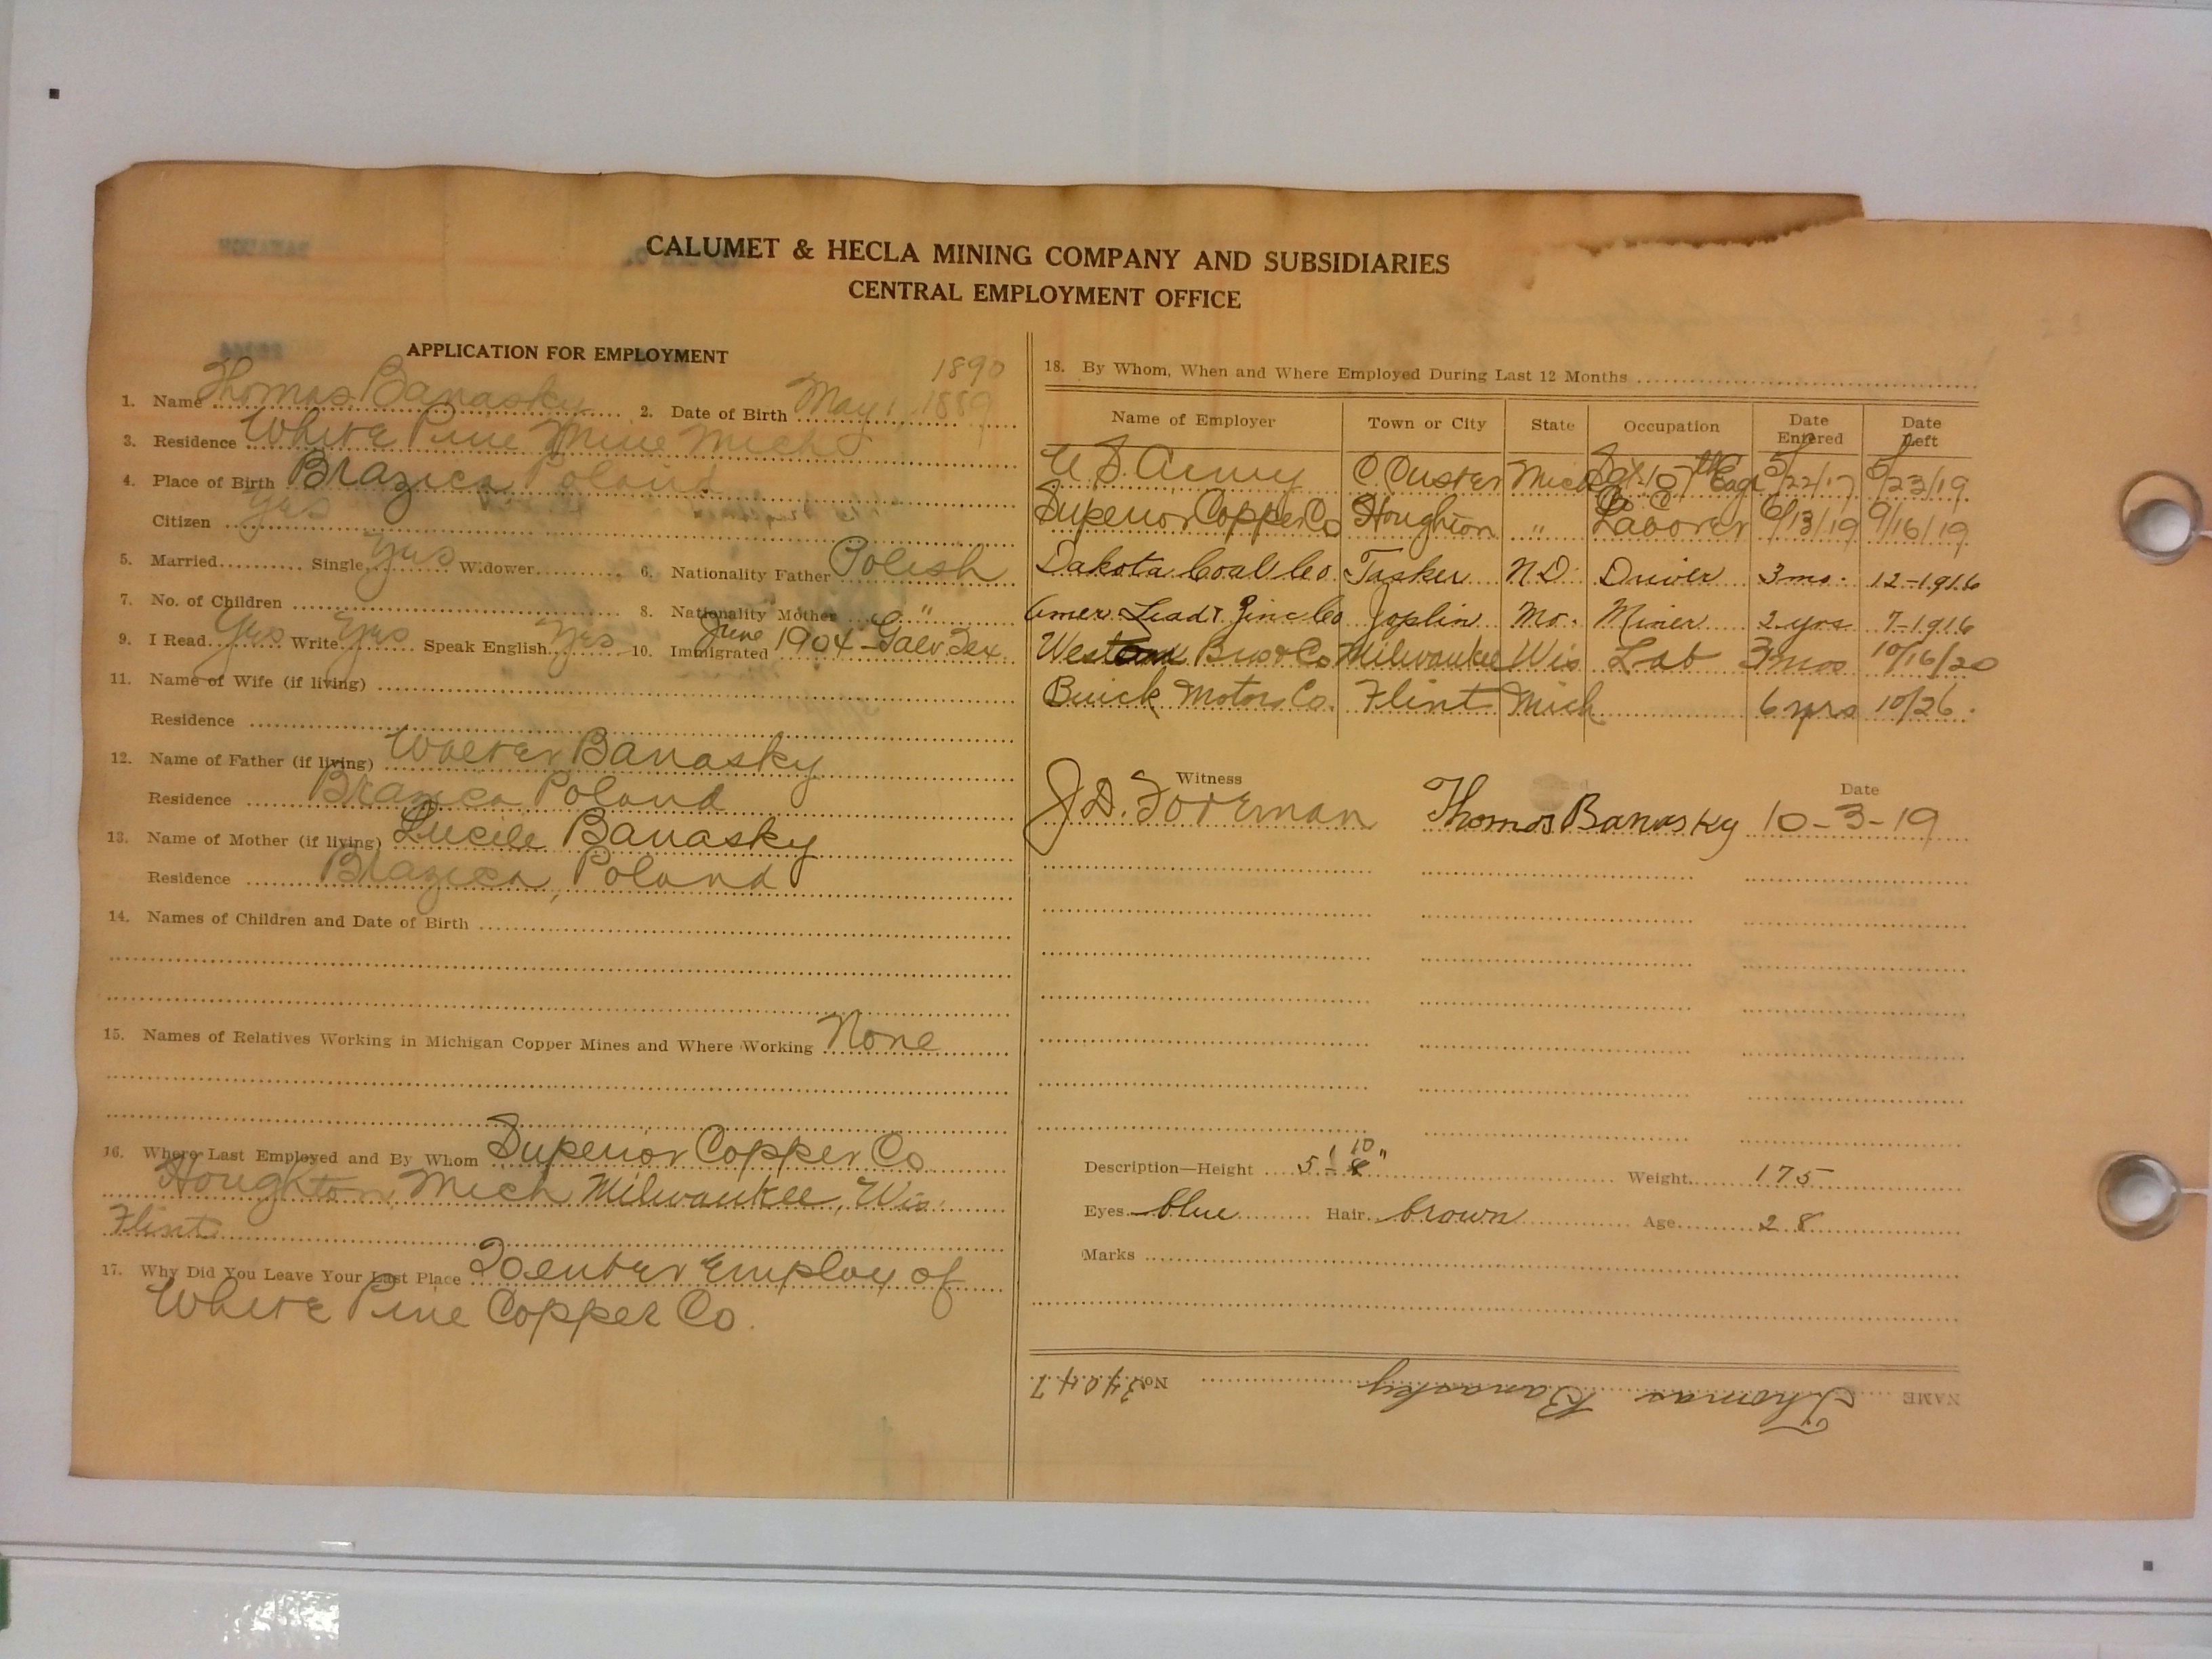 CALUMET & HECLA MINING COMPANY AND SUBSIDIARIES
CENTRAL EMPLOYMENT OFFICE
APPLICATION FOR EMPLOYMENT
1890
1. Name Thomas Banasky 2. Date of Birth May 1, 1889
3. Residence White Pine Mine Mich
4. Place of Birth Brazica Poland
Citizen yes
5. Married Single yes Widower 6. Nationality Father Polish
7. No. of Children 8. Nationality Mother "
9. I Read Yes Write Yes Speak English Yes 10. Immigrated June 1904 - Galv. Tex.
11. Name of Wife (if living)
Residence
12. Name of Father (if living) Walter Banasky
Residence Brazica Poland
13. Name of Mother (if living) Lucile Banasky
Residence Brazica, Poland
14. Names of Children and Date of Birth
15. Names of Relatives Working in Michigan Copper Mines and Where Working None
16. Where Last Employed and By Whom Superior Copper Co
Houghton, Mich Milwaukee, Wis.
Flint
17. Why Did You Leave Your Last Place To enter Employ of
White Pine Copper Co.
18. By Whom, When and Where Employed During Last 12 Months
Name of Employer Town or City State Occupation Date Entered Date Left
U S. Army C. Custer Mich Sgt. 5/22/17 5/23/19
Superior Copper Co Houghton " Laborer 6/13/19 9/16/19
Dakota Coal Co Tasker N.D. Driver 3 mo. 12-1916
Amer Lead & Zinc Co Joplin Mo. Miner 2 yrs 7-1916
Western Co Milwaukee Wis Lab 3 mos 10/16/20
Buick Motors Co. Flint Mich 6 yrs 10/26.
Witness Date
J.D. Foreman Thomas Banasky 10-3-19
Description—Height 5'-8" 10 Weight 175
Eyes blue Hair brown Age 28
Marks
NAME Thomas Banasky No. 34047